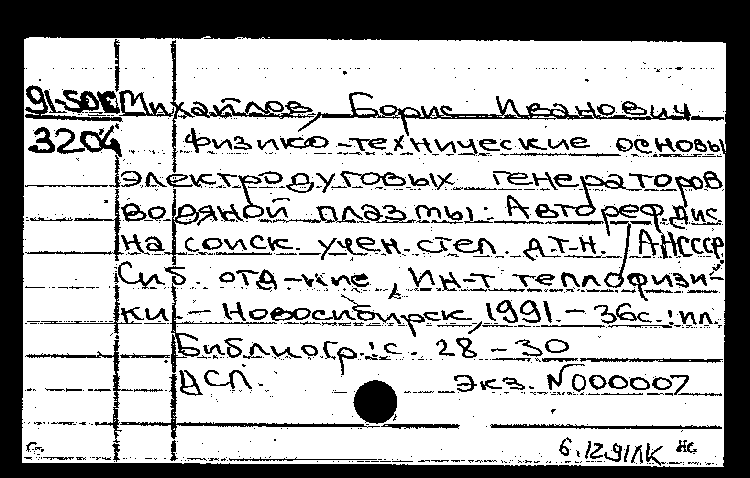 91-50к Михайлов, Борис Иванович
3204 Физико-технические основы
электродуговых генераторов
водяной плазмы: Автореф. дис
на соиск. учен. степ. д.т.н. / АН СССР
Сиб. отд-ние, Ин-т теплофизи-
ки. – Новосибирск, 1991. – 36с.: ил.
Библиогр.: с. 28 – 30
ДСП. Экз. N000007
6.12.91 ЛК нс